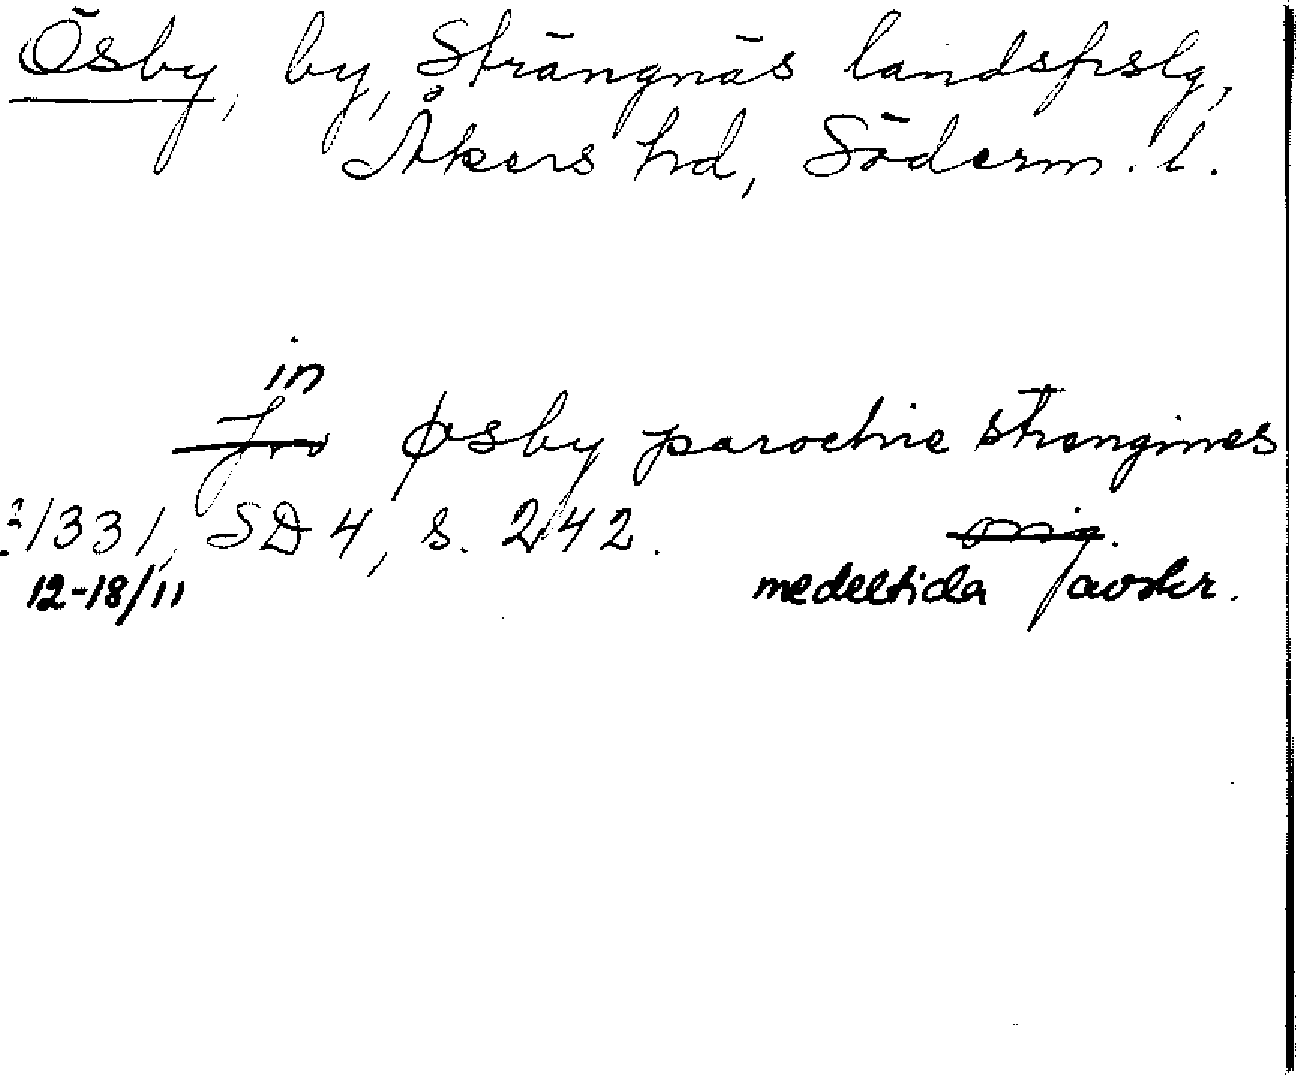 Ösby, by, Strängnäs landsfslg,
Åkers hd, Söderm. l.
in
Jn ø̶sby parochie strengines
1331, SD 4, s. 242. orig.
12-18/11 medeltida avskr.